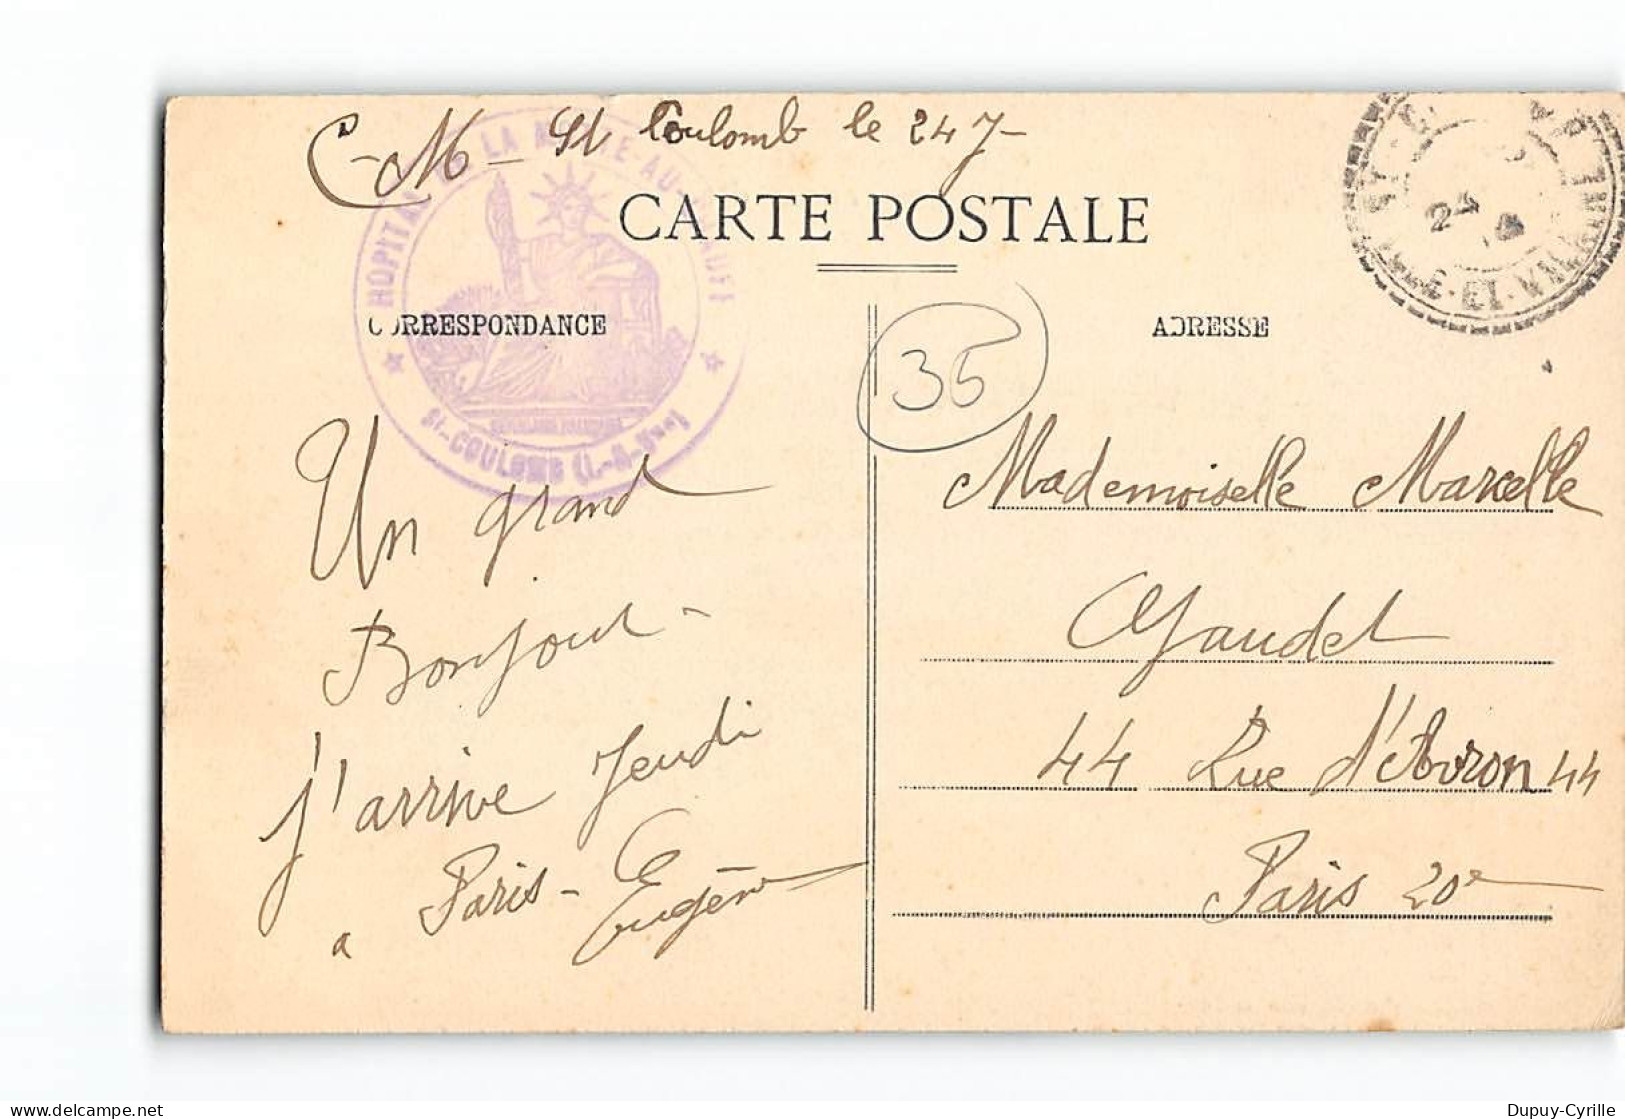 C-M- St Coulomb le 24 7-
CARTE POSTALE
CORRESPONDANCE
ADRESSE
HOPITAL LA AU
St-COULOMB (I.-&-V.)
REPUBLIQUE FRANCAISE
24
ILLE-ET-VILAINE
35
Un grand
Bonjour-
j'arrive Jeudi
a Paris- Eugène
Mademoiselle Marcelle
Gaudel
44 Rue d'Avron 44
Paris 20e
Dupuy-Cyrille